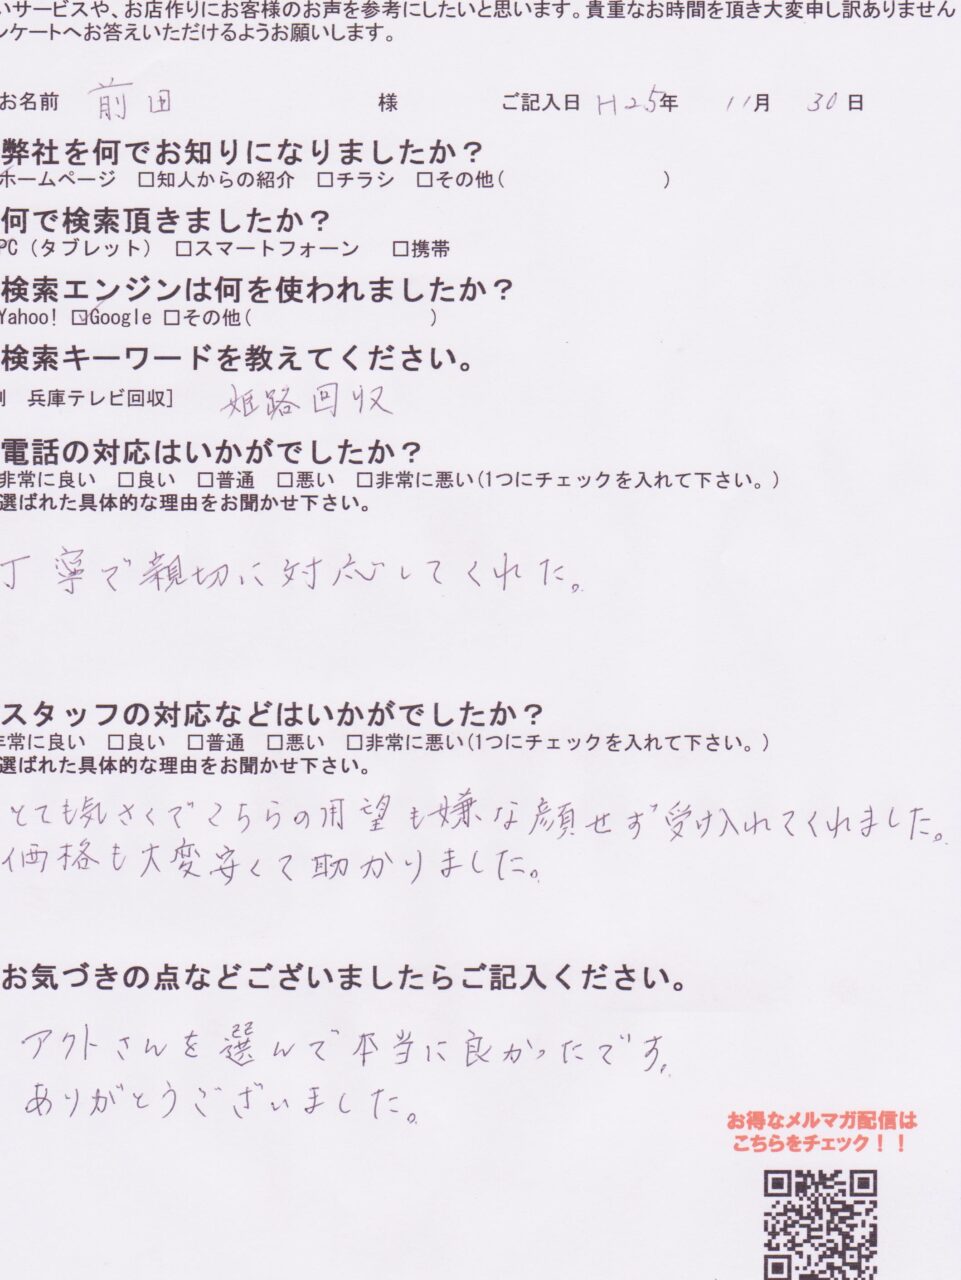 いサービスや、お店作りにお客様のお声を参考にしたいと思います。貴重なお時間を頂き大変申し訳ありません
ンケートへお答えいただけるようお願いします。
お名前 前田 様 ご記入日 H25年 11月 30日
弊社を何でお知りになりましたか？
ホームページ □知人からの紹介 □チラシ □その他( )
何で検索頂きましたか？
PC（タブレット） □スマートフォーン □携帯
検索エンジンは何を使われましたか？
Yahoo! ☑Google □その他( )
検索キーワードを教えてください。
兵庫テレビ回収] 姫路回収
電話の対応はいかがでしたか？
非常に良い □良い □普通 □悪い □非常に悪い(1つにチェックを入れて下さい。)
選ばれた具体的な理由をお聞かせ下さい。
丁寧で親切に対応してくれた。
スタッフの対応などはいかがでしたか？
非常に良い □良い □普通 □悪い □非常に悪い(1つにチェックを入れて下さい。)
選ばれた具体的な理由をお聞かせ下さい。
とても気さくでこちらの用望も嫌な顔せず受け入れてくれました。
価格も大変安くて助かりました。
お気づきの点などございましたらご記入ください。
アクトさんを選んで本当に良かったです。
ありがとうございました。
お得なメルマガ配信は
こちらをチェック！！